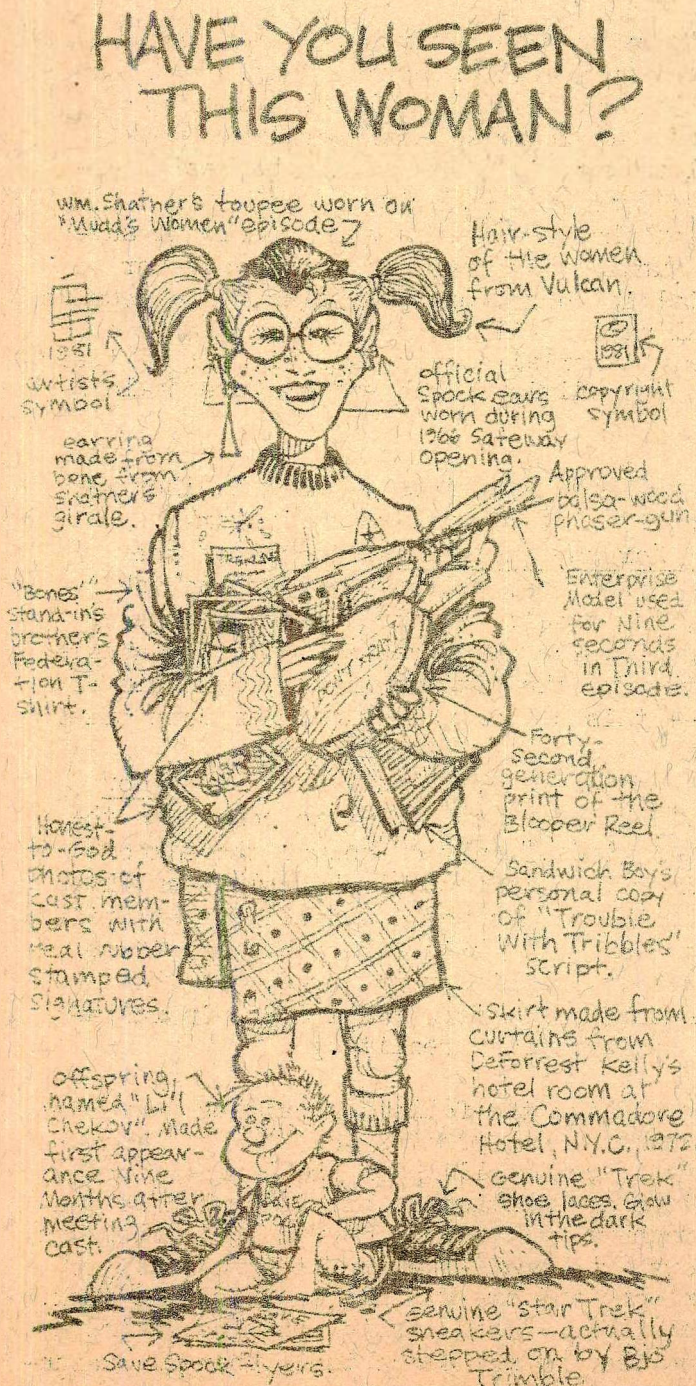 HAVE YOU SEEN
THIS WOMAN?
Wm. Shatner's toupee worn on
"Mudd's Women" episode
Hair-style
of the women
from Vulcan.
1981
artist's
symbol
©
1981
copyright
symbol
official
Spock ears
worn during
1966 Safeway
opening.
earring
made from
bone from
shatner's
girdle.
Approved
balsa-wood
phaser-gun
"Bones'"
stand-in's
brother's
Federa-
tion T-
shirt.
Enterprise
Model used
for Nine
seconds
in Third
episode.
DON'T
Forty-
second
generation
print of the
Blooper Reel.
Honest-
to-God
photos of
cast mem-
bers with
real rubber
stamped
signatures.
Sandwich Boy's
personal copy
of "Trouble
With Tribbles"
script.
Skirt made from
curtains from
DeForrest Kelly's
hotel room at
the Commadore
Hotel, N.Y.C., 1972
offspring,
named "Li'l
Chekov". Made
first appear-
ance Nine
Months after
meeting
cast.
Genuine "Trek"
shoe laces. Glow
in the dark
tips.
Genuine "Star Trek"
sneakers—actually
stepped on by Bjo
Trimble.
Save Spock flyers.